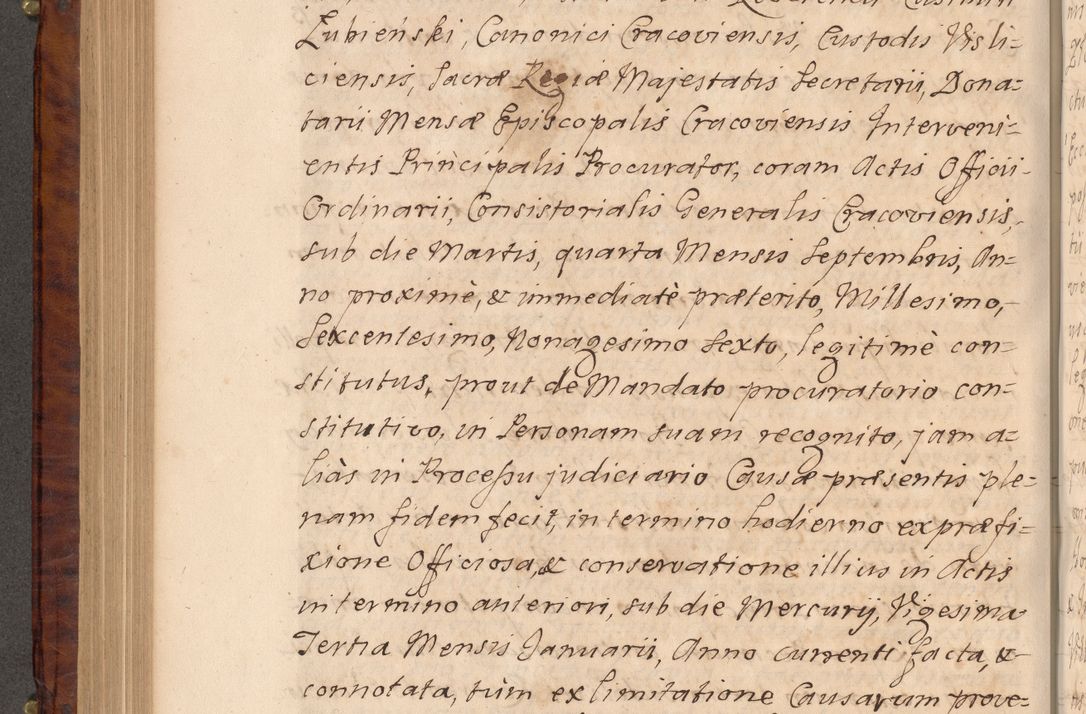 Łubieński, Canonici Cracoviensis, Custodis Visli=
ciensis, Sacræ Regiæ Majestatis Secretarii, Dona=
tarii Mensæ Episcopalis Cracoviensis Interveni=
entis Principalis Procurator, coram Actis Officii
Ordinarii, Consistorialis Generalis Cracoviensis,
sub die Martis, quarta Mensis Septembris, An=
no proximè, & immediatè præterito, Millesimo,
Sexcentesimo, Nonagesimo Sexto, legitimè con=
stitutus, prout de Mandato procuratorio con=
stitutivo, in Personam suam recognito, jam a=
liàs in Processu judiciario Causæ præsentis ple=
nam fidem fecit, in termino hodierno ex præfi=
xione Officiosa, & conservatione illius in Actis
in termino anteriori, sub die Mercurij, Vigesima
Tertia Mensis Januarii, Anno currenti facta, &
connotata, tùm ex limitatione Causarum prove=